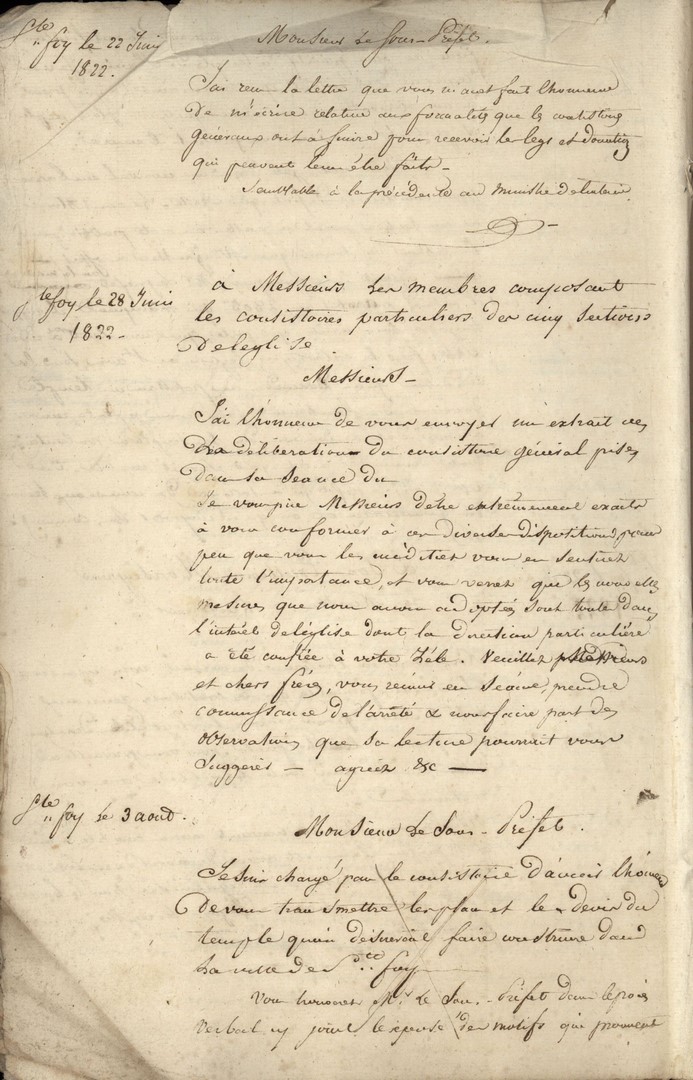 Ste foy le 22 Juin
1822.
Monsieur Le Sous-Préfet.
J'ai reçu la lettre que vous m'avez fait l'honneur
De m'écrire relative aux formalités que les consistoires
généraux ont à suivre pour recevoir les legs et donations
qui peuvent leur être faits -
Semblable à la précédente au Ministre de l'intérieur
Ste foy le 28 Juin
1822 -
à Messieurs Les membres composant
les consistoires particuliers des cinq sections
De l'eglise
Messieurs -
J'ai l'honneur de vous envoyer un extrait
des déliberations du consistoire général prises
Dans sa seance du
Je vous prie Messieurs d'être extrêmement exacts
à vous conformer à ces diverses dispositions, pour
peu que vous les méditiez vous en sentirez
toute l'importance, et vous verrez que les nouvelles
mesures que nous avons adoptées sont toutes dans
l'intérêt de l'église dont la direction particulière
a été confiée à votre Zèle. Veuillez Messieurs
et chers frères, vous réunir en séance, prendre
connaissance de l'arrêté & nous faire part des
observations que sa lecture pourrait vous
suggérer - agréez &c -
Ste foy le 3 aout.
Monsieur Le Sous-Préfet.
Je suis chargé par le consistoire d'avoir l'honneur
De vous transmettre les plan et le Devis du
temple qu'on désirerait faire construire dans
La ville de Ste foy -
Vous trouverez Mr. Le Sous-Préfet dans le procès
verbal cy joint des motifs qui prouvent